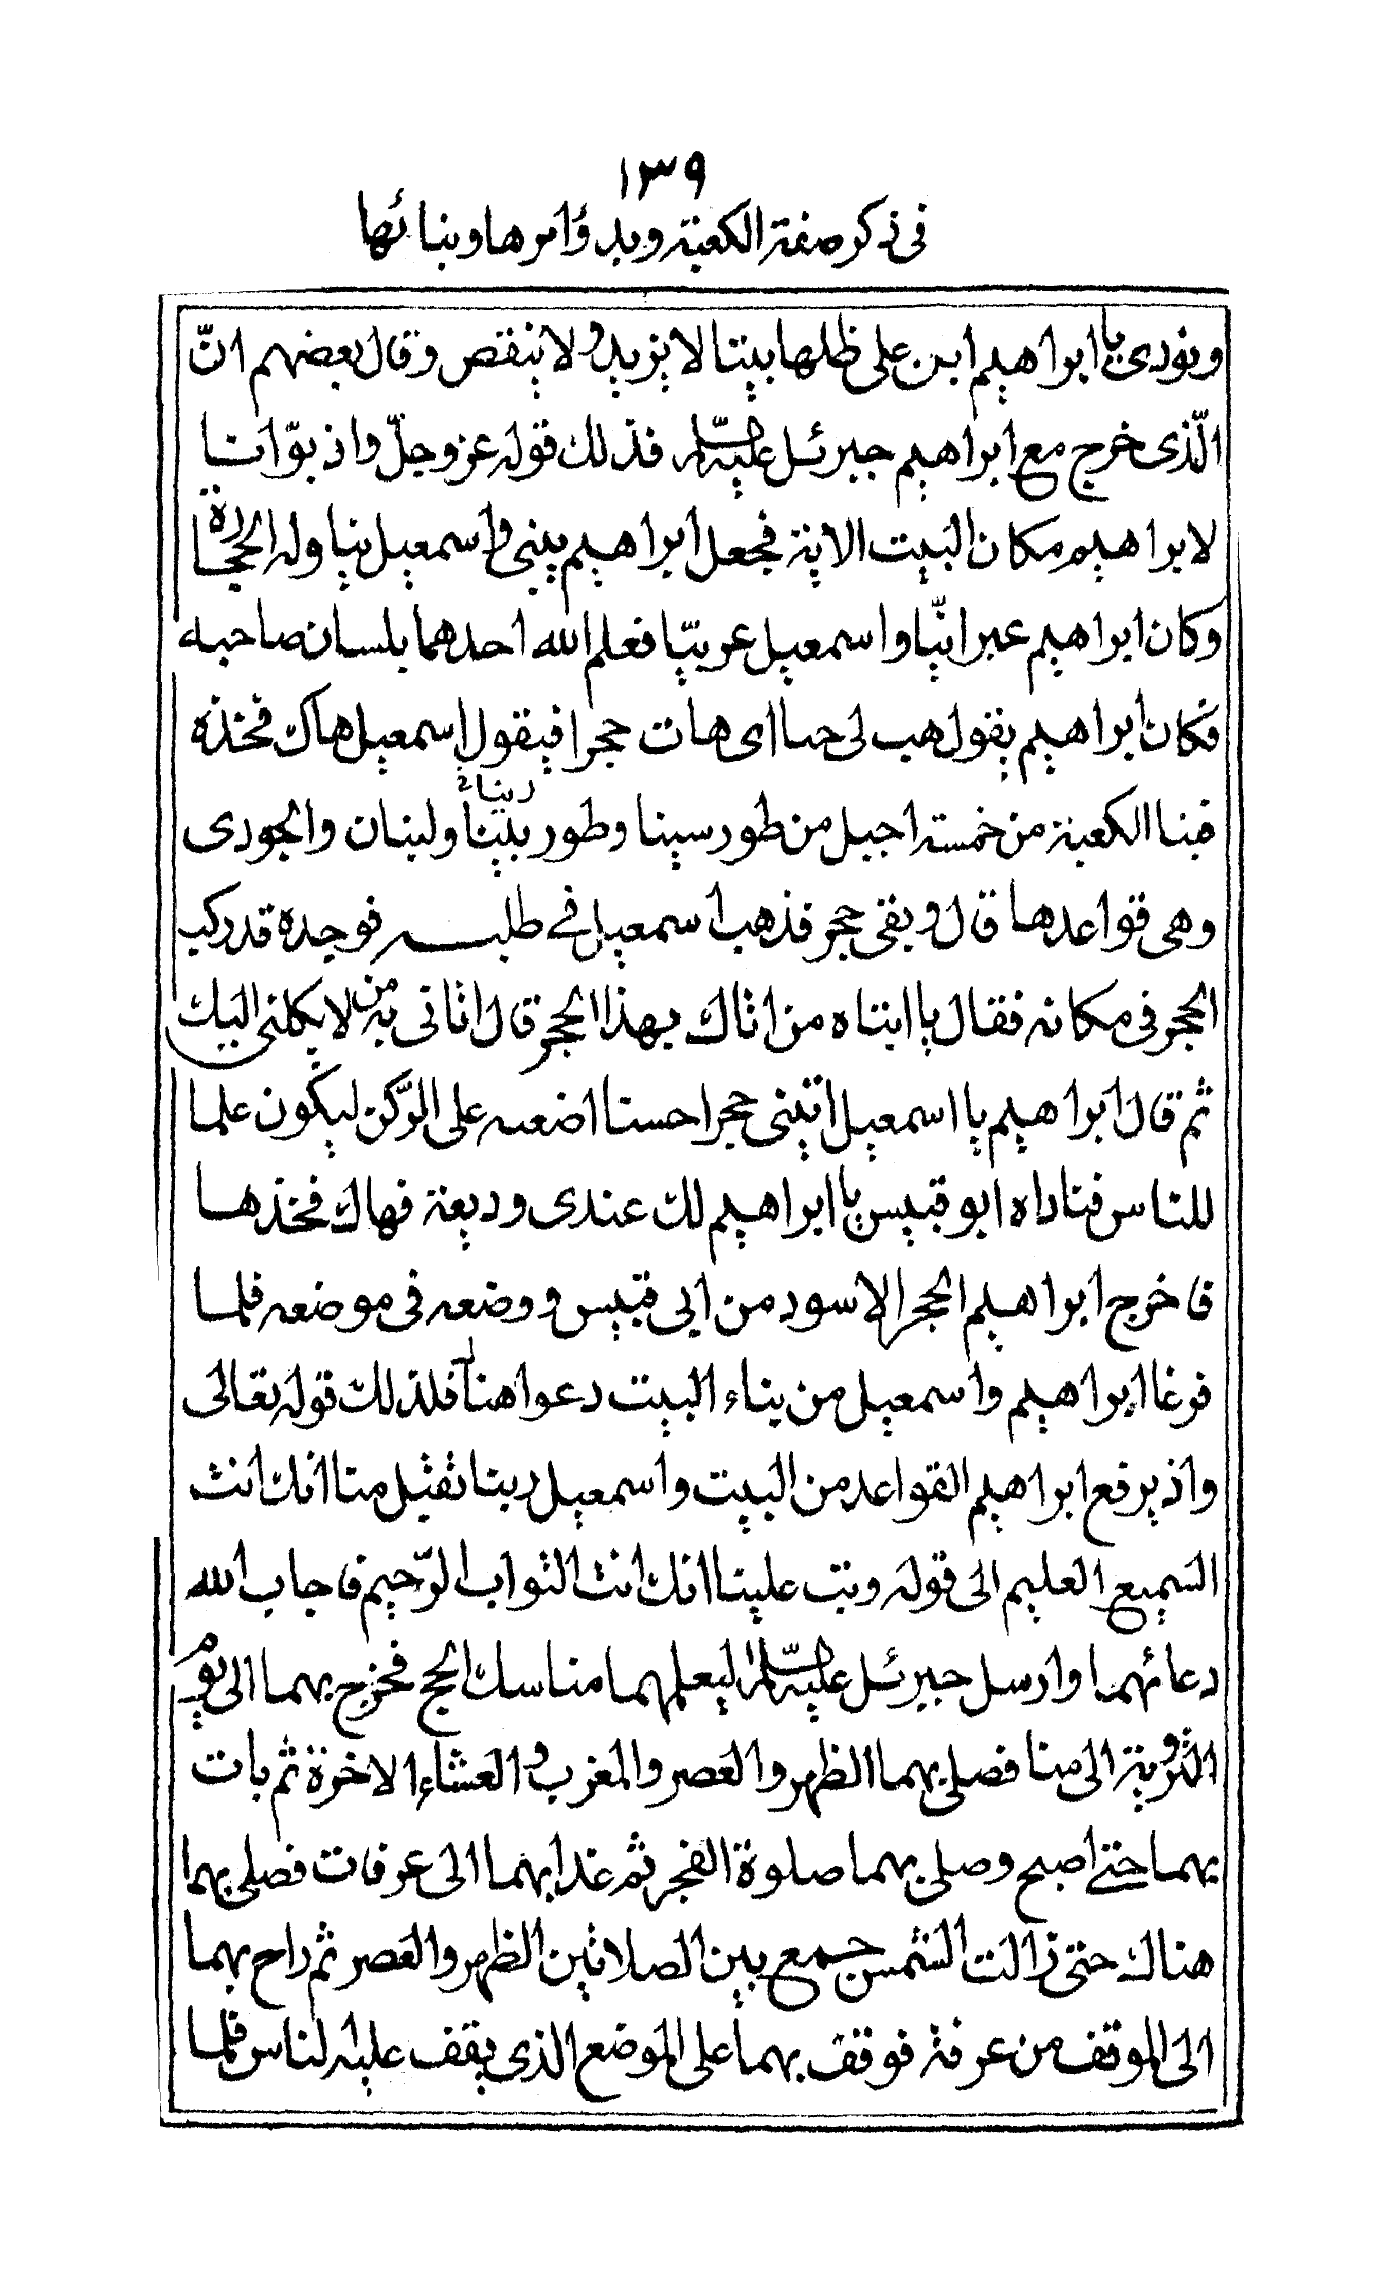 ١٣٩
فى ذكر صفة الكعبة وبدؤ امرها وبنائها
ونودى يا ابراهيم ابن على ظلها بيتا لا يزيد ولا ينقص وقال بعضهم انّ
الّذى خرج مع ابراهيم جبرئيل عليه السّلم فذلك قوله عز وجلّ واذ بوّانا
لابراهيم مكان البيت الاية فجعل ابراهيم يبنى واسمعيل يناوله الحجارة
وكان ابراهيم عبرانيّا واسمعيل عربيّا فعلم الله احدهما بلسان صاحبه
فكان ابراهيم يقول هب لى اى هات حجرا فيقول اسمعيل هاك فخذه
فبنا الكعبة من خمسة اجبل من طور سينا وطور ولبنان والجودى
وهى قواعدها قال وبقى حجر فذهب اسمعيل فى طلبه فوجده قد ركب
الحجر فى مكانه فقال يا ابتاه من اتاك بهذا الحجر قال اتانى به من لا يكلنى اليك
ثم قال ابراهيم يا اسمعيل ائتينى حجرا حسنا اضعه على الرّكن ليكون علما
للناس فناداه ابو قبيس يا ابراهيم لك عندى وديعة فهاك فخذها
فاخرج ابراهيم الحجر الاسود من ابى قبيس ووضعه فى موضعه فلما
فرغا ابراهيم واسمعيل من بناء البيت دعوا هنالك فذلك قوله تعالى
واذ يرفع ابراهيم القواعد من البيت واسمعيل ربنا تقبل منا انك انت
السميع العليم الى قوله وتب علينا انك انت التواب الرّحيم فاجاب الله
دعائهما وارسل جبرئيل عليه السّلم ليعلمهما مناسك الحج فخرج بهما الى يوم
التروية الى منا فصلى بهما الظهر والعصر والمغرب والعشاء الاخرة ثم بات
بهما حتى اصبح وصلى بهما صلوة الفجر ثم غدا بهما الى عرفات فصلى بهما
هناك حتى زالت الشمس جمع بين الصلاتين الظهر والعصر ثم راح بهما
الى الموقف من عرفة فوقف بهما على الموضع الذى يقف عليه لناس فلما